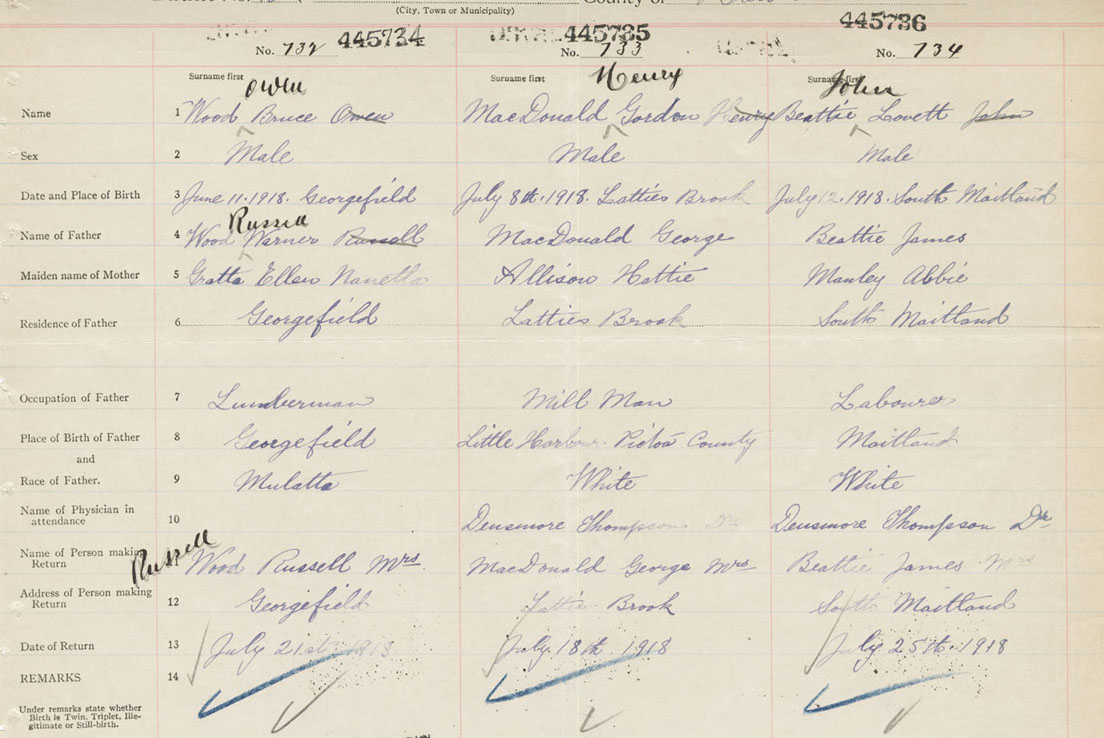 (City, Town or Municipality)
County of
445734 445735 445736
No. 732 No. 733 No. 734
Surname first Surname first Surname first
Owen Henry John
Name 1 Wood Bruce Owen MacDonald Gordon Henry Beattie Lovett John
Sex 2 Male Male Male
Date and Place of Birth 3 June 11. 1918. Georgefield July 8th. 1918. Latties Brook July 12. 1918. South Maitland
Russell
Name of Father 4 Wood Warner Russell MacDonald George Beattie James
Maiden name of Mother 5 Gratta Ellen Nanetta Allison Hattie Manley Abbie
Residence of Father 6 Georgefield Latties Brook South Maitland
Occupation of Father 7 Lumberman Mill Man Labourer
Place of Birth of Father 8 Georgefield Little Harbour. Pictou County Maitland
and
Race of Father. 9 Mulatta White White
Name of Physician in
attendance 10 Densmore Thompson Dr Densmore Thompson Dr
Russell
Name of Person making
Return 11 Wood Russell Mrs. MacDonald George Mrs Beattie James Mrs
Address of Person making
Return 12 Georgefield Latties Brook South Maitland
Date of Return 13 July 21st 1918 July. 18th 1918 July 25th. 1918
REMARKS 14
Under remarks state whether
Birth is Twin, Triplet, Ille-
gitimate or Still-birth.